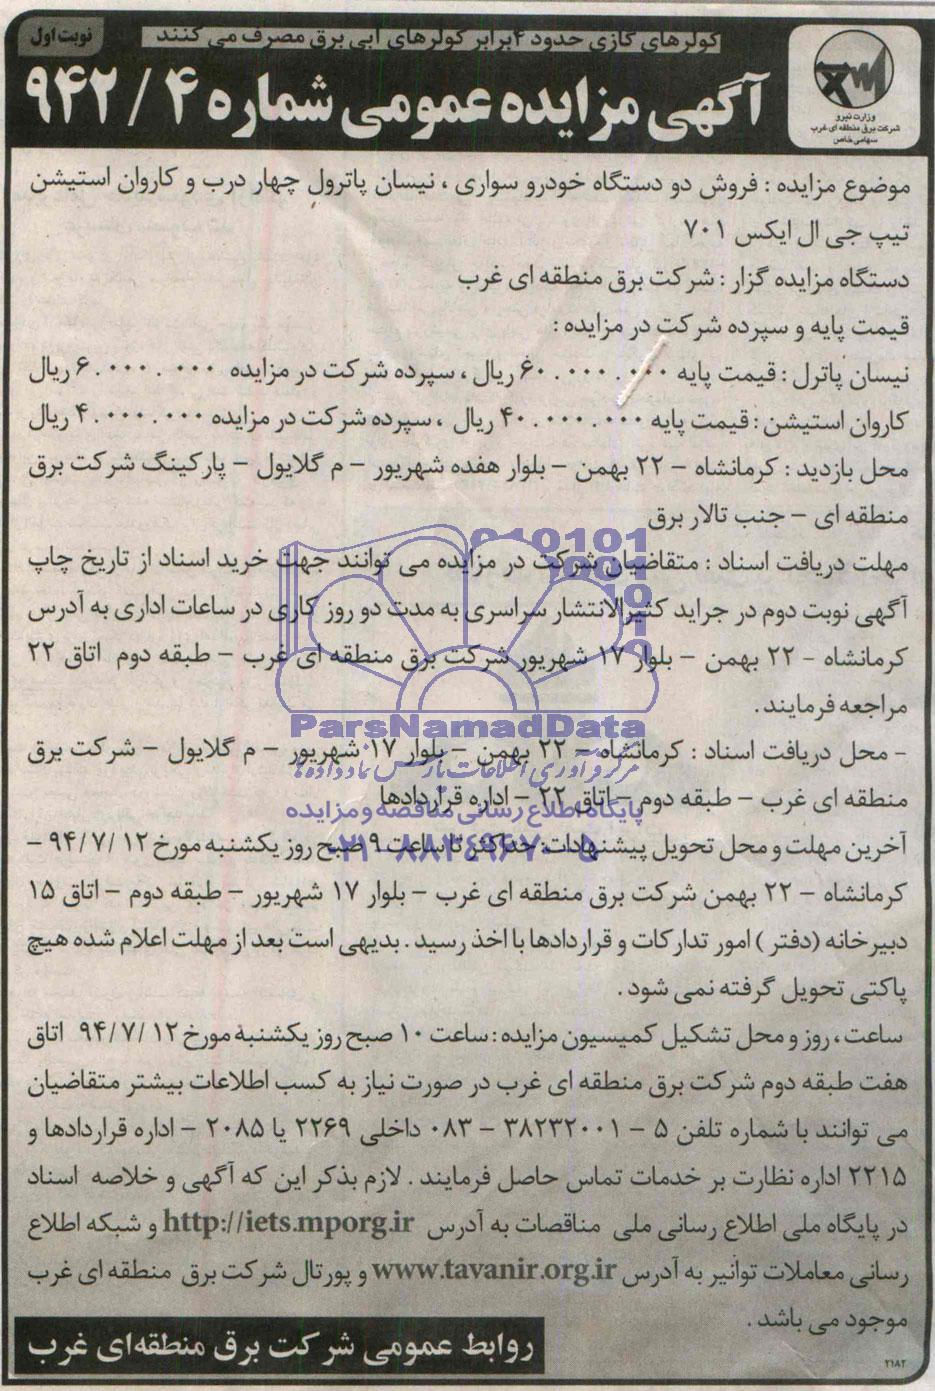 نوبت اول
کولرهای گازی حدود ۴برابر کولرهای آبی برق مصرف می کنند
آگهی مزایده عمومی شماره ۴ / ۹۴۲
وزارت نیرو
شرکت برق منطقه ای غرب
سهامی خاص
موضوع مزایده : فروش دو دستگاه خودرو سواری ، نیسان پاترول چهار درب و کاروان استیشن
تیپ جی ال ایکس ۷۰۱
دستگاه مزایده گزار : شرکت برق منطقه ای غرب
قیمت پایه و سپرده شرکت در مزایده :
نیسان پاترل : قیمت پایه ۶۰.۰۰۰.۰۰۰ ریال ، سپرده شرکت در مزایده ۶.۰۰۰.۰۰۰ ریال
کاروان استیشن : قیمت پایه ۴۰.۰۰۰.۰۰۰ ریال ، سپرده شرکت در مزایده ۴.۰۰۰.۰۰۰ ریال
محل بازدید : کرمانشاه – ۲۲ بهمن – بلوار هفده شهریور – م گلایول – پارکینگ شرکت برق
منطقه ای – جنب تالار برق
مهلت دریافت اسناد : متقاضیان شرکت در مزایده می توانند جهت خرید اسناد از تاریخ چاپ
آگهی نوبت دوم در جراید کثیرالانتشار سراسری به مدت دو روز کاری در ساعات اداری به آدرس
کرمانشاه - ۲۲ بهمن – بلوار ۱۷ شهریور شرکت برق منطقه ای غرب – طبقه دوم اتاق ۲۲
مراجعه فرمایند .
- محل دریافت اسناد : کرمانشاه – ۲۲ بهمن – بلوار ۱۷ شهریور – م گلایول – شرکت برق
منطقه ای غرب – طبقه دوم – اتاق ۲۲ – اداره قراردادها
آخرین مهلت و محل تحویل پیشنهادات: حداکثر تا ساعت ۹ صبح روز یکشنبه مورخ ۹۴/۷/۱۲ –
کرمانشاه – ۲۲ بهمن شرکت برق منطقه ای غرب – بلوار ۱۷ شهریور – طبقه دوم – اتاق ۱۵
دبیرخانه (دفتر ) امور تدارکات و قراردادها با اخذ رسید . بدیهی است بعد از مهلت اعلام شده هیچ
پاکتی تحویل گرفته نمی شود .
ساعت ، روز و محل تشکیل کمیسیون مزایده : ساعت ۱۰ صبح روز یکشنبه مورخ ۹۴/۷/۱۲ اتاق
هفت طبقه دوم شرکت برق منطقه ای غرب در صورت نیاز به کسب اطلاعات بیشتر متقاضیان
می توانند با شماره تلفن ۵ – ۳۸۲۳۲۰۰۱ – ۰۸۳ داخلی ۲۲۶۹ یا ۲۰۸۵ – اداره قراردادها و
۲۲۱۵ اداره نظارت بر خدمات تماس حاصل فرمایند . لازم بذکر این که آگهی و خلاصه اسناد
در پایگاه ملی اطلاع رسانی ملی مناقصات به آدرس http://iets.mporg.ir و شبکه اطلاع
رسانی معاملات توانیر به آدرس www.tavanir.org.ir و پورتال شرکت برق منطقه ای غرب
موجود می باشد .
روابط عمومی شرکت برق منطقه‌ای غرب
۲۱۸۲
ParsNamadData
مرکز فرآوری اطلاعات پارس نماد داده ها
پایگاه اطلاع رسانی مناقصه و مزایده
۰۲۱-۸۸۳۴۹۶۷۰-۵